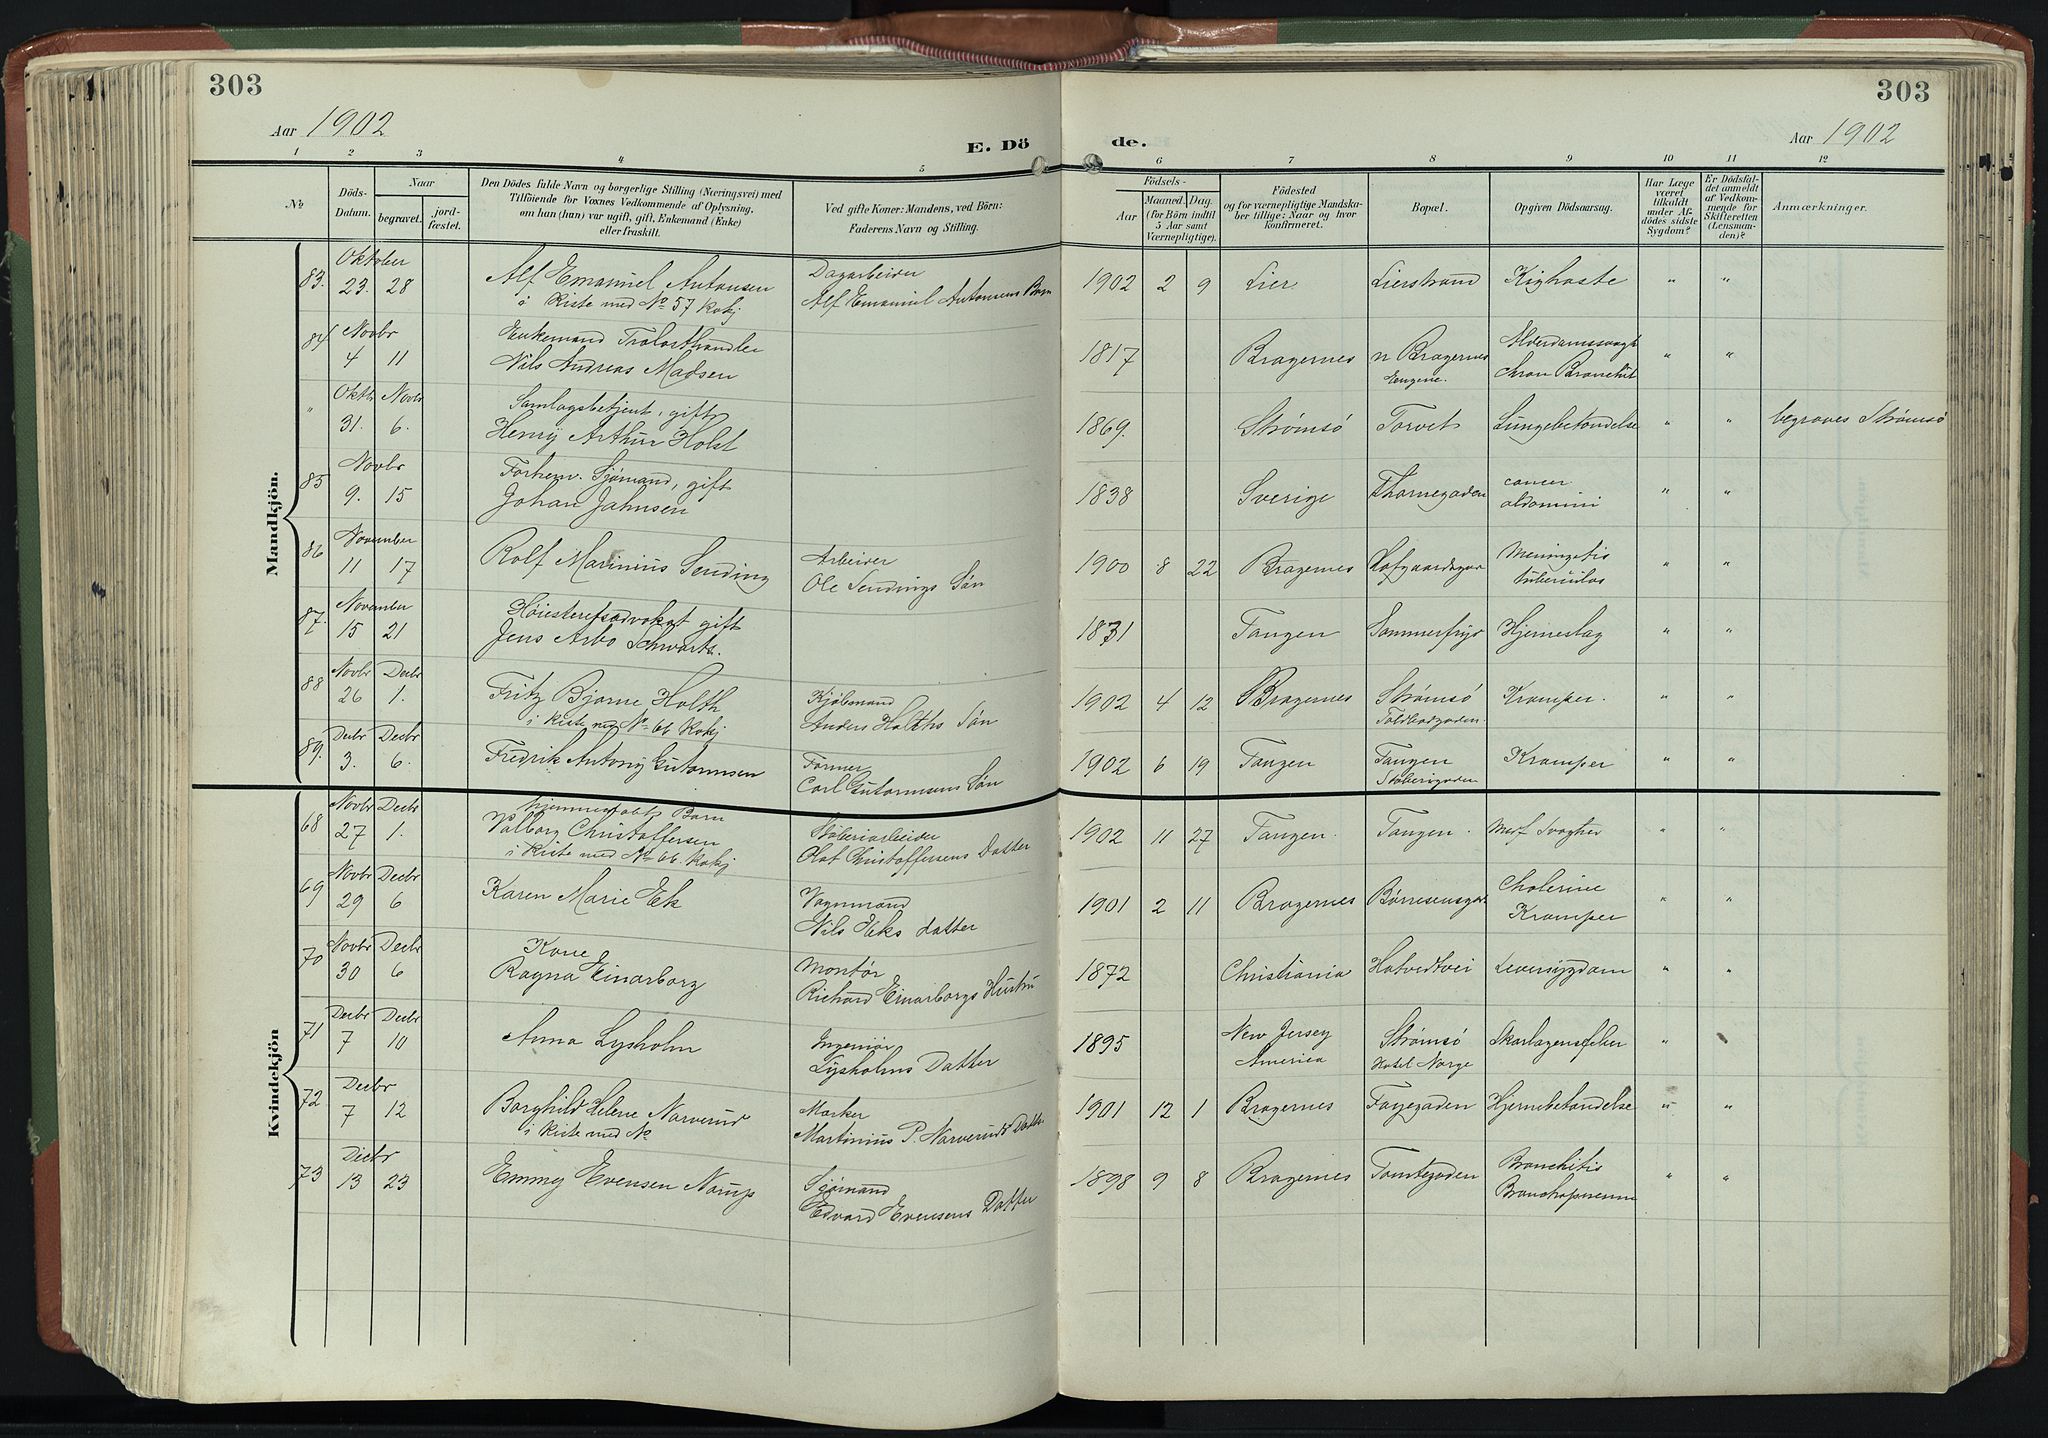 303
303
Aar 1902
E. Dö
de.
Aar 1902
1 2 3 4 5 6 7 8 9 10 11 12
No
Döds-
Datum.
Naar
begravet.
jord-
fæstet.
Den Dödes fulde Navn og borgerlige Stilling (Næringsvei) med
Tilföiende for Voxnes Vedkommende af Oplysning,
om han (hun) var ugift, gift, Enkemand (Enke)
eller fraskilt.
Ved gifte Koner: Mandens, ved Börn:
Faderens Navn og Stilling.
Födsels-
Aar
Maaned. Dag.
(for Börn indtil
5 Aar samt
Værnepligtige).
Födested
og for værnepligtige Mandska-
ber tillige: Naar og hvor
konfirmeret.
Bopæl.
Opgiven Dödsaarsag.
Har Læge
været
tilkaldt
under Af-
dödes sidste
Sygdom?
Er Dödsfal-
det anmeldt
af Vedkom-
mende for
Skifteretten
(Lensman-
den)?
Anmærkninger.
Mandkjön.
83. Oktober
23. 28
Alf Emanuel Antonsen
i Kiste med No 57 Kvkj
Dagarbeider
Alf Emanuel Antonsens Barn
1902 2 9 Lier Lierstrand Kighoste " "
84 Novbr
4 11
Enkemand Trælasthandler
Nils Andreas Madsen
1817 Bragernes n Bragernes
Engene.
Alderdomssvagh
chron Bronchit " "
" Oktbr Novbr
31. 6.
Samlagsbetjent, gift
Henry Arthur Holst
1869. Strømsø Torvet Lungebetændelse " " begraves Strømsø
85 Novbr
9. 15
Forhenv. Sjømand, gift
Johan Jahnsen
1838 Sverige Thornegaden cancer
abdomini " "
86 November
11 17
Rolf Marinius Sending
Arbeider
Ole Sendings Søn
1900 8 22 Bragernes Hofgaardsgar Meningetis
tuberculos " "
87. November
15 21
Høiesteretsadvokat gift
Jens Arbo Schwartz.
1831 Tangen Sommerfryd Hjerneslag " "
88 Novbr Decbr
26 1.
Fritz Bjarne Holth
i Kiste med No 66 Kvkj
Kjøbmand
Anders Holths Søn
1902 4 12 Bragernes Strømsø
Toldbodgaden. Kramper. " "
89. Decbr Decbr
3. 6.
Fredrik Antony Gutormsen
Former
Carl Gutormsens Søn
1902 6 19 Tangen Tangen
Støberigaden Kramper " "
Kvindekjön
68 Novbr Decbr
27 1.
hjemmedøbt Barn
Valborg Christoffersen
i Kiste med No 66 Kvkj
Støberiarbeider
Olaf Christoffersens Datter
1902 11 27 Tangen. Tangen. Medf Svaghed " "
69 Novbr Decbr
29 6
Karen Marie Ek
Vognmand
Nils Eks datter
1901 2 11 Bragernes Børresensgad Cholerine
Kramper " "
70 Novbr Decbr
30 6
Kone
Ragna Einarborg
Montør
Richard Einarborgs Hustru
1872 Christiania Hotvedtvei Leversygdom " "
71 Decbr Decbr
7 10
Anna Lysholm
Ingeniør
Lysholms Datter
1895 New Jersey
America
Strømsø
Hotel Norge Skarlagensfeber " "
72 Decbr
7 12
Borghild Helene Narverud
i Kiste med No
Marker
Martinius P. Narveruds Datter
1901 12 1 Bragernes Fayegaden Hjernebetændelse " "
73 Decbr
13 23
Emmy Evensen Narup
Sjømand
Edvard Evensens Datter
1898 9 8 Bragernes Tomtegaden Bronchitis
Bronchopneumo " "